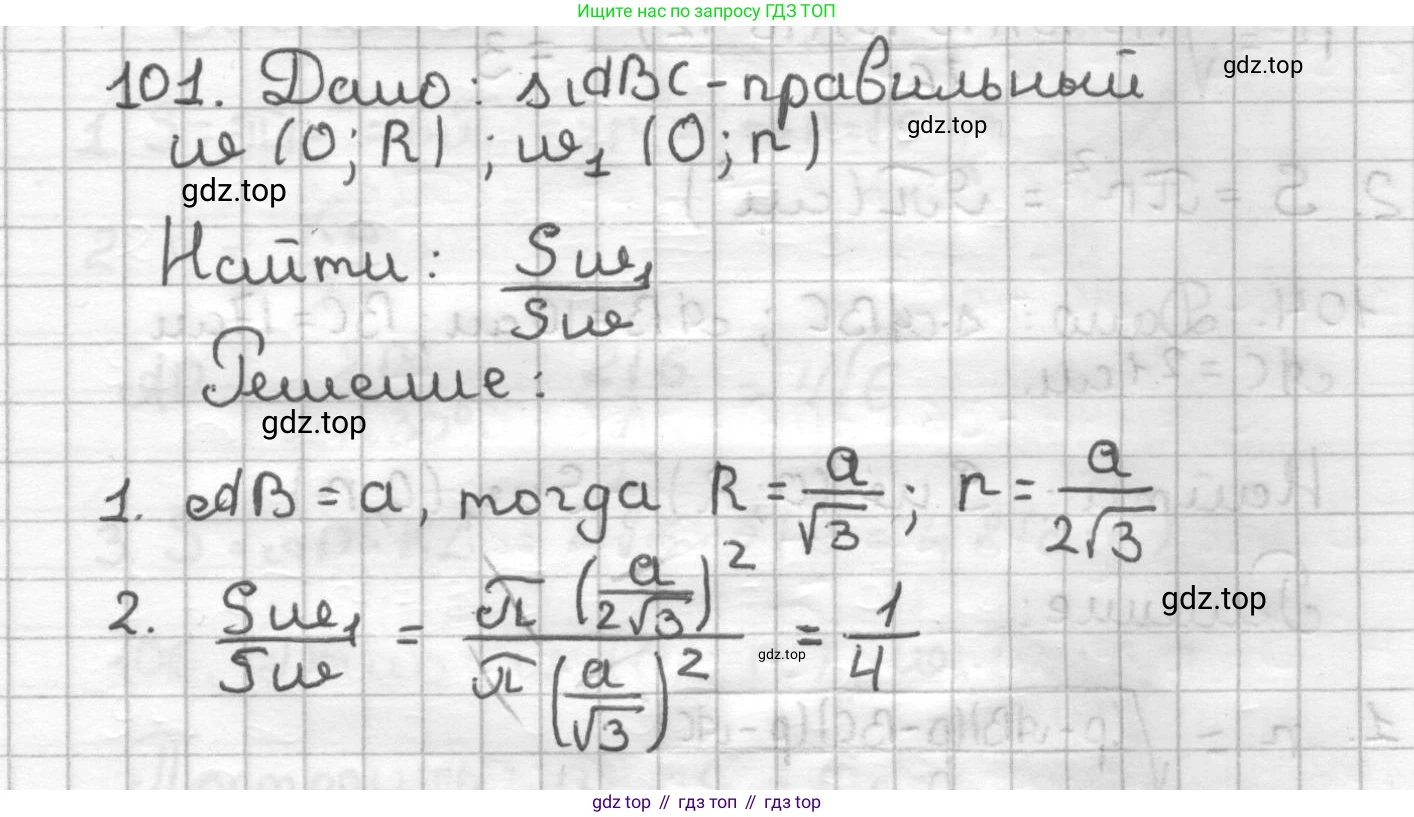 Ищите нас по запросу ГДЗ ТОП
101. Дано: △ABC - правильный
gdz.top
ω (O; R) ; ω₁ (O; r)
gdz.top
gdz.top
Найти: Sω₁/Sω
Решение:
gdz.top
1. AB = a, тогда R = a/√3; r = a/(2√3)
2. Sω₁/Sω = π(a/(2√3))²/π(a/√3)² = 1/4
gdz.top
gdz.top
gdz top // гдз топ // gdz top